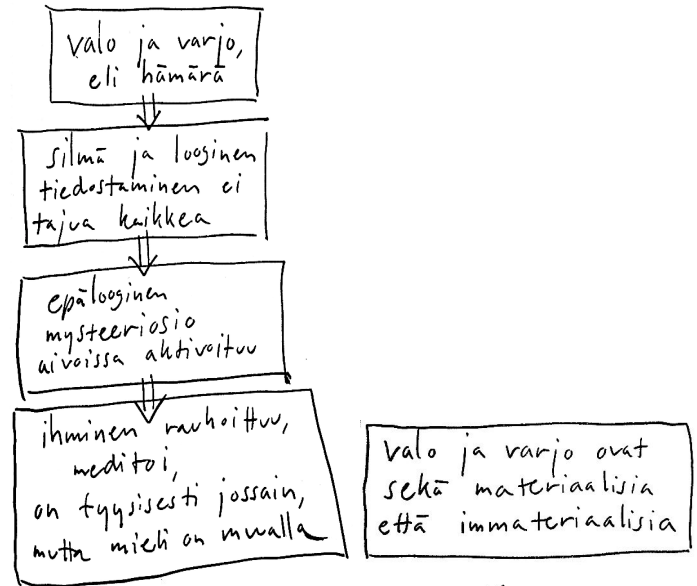 valo ja varjo,
eli hämärä
silmä ja looginen
tiedostaminen ei
tajua kaikkea
epälooginen
mysteeriosio
aivoissa aktivoituu
ihminen rauhoittuu,
meditoi,
on fyysisesti jossain,
mutta mieli on muualla
valo ja varjo ovat
sekä materiaalisia
että immateriaalisia